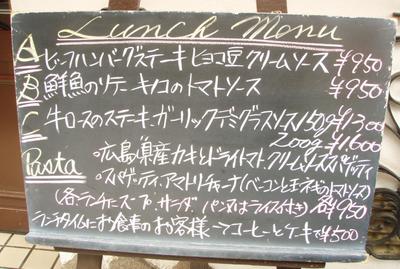 Lunch Menu
A ビーフハンバーグステーキ ヒヨコ豆クリームソース ¥950
B 鮮魚のソテー キノコのトマトソース ¥950
C 牛ロースのステーキ ガーリックデミグラスソース 150g ¥1,300
200g ¥1,600
Pasta ・広島県産カキとドライトマトクリームソーススパゲッティ
・スパゲッティアマトリチャーナ(ベーコンと玉ネギのトマトソース)
(各ランチ スープ サラダ パン又はライス付き) 各¥950
ランチタイムにお食事のお客様→コーヒーとケーキで¥500